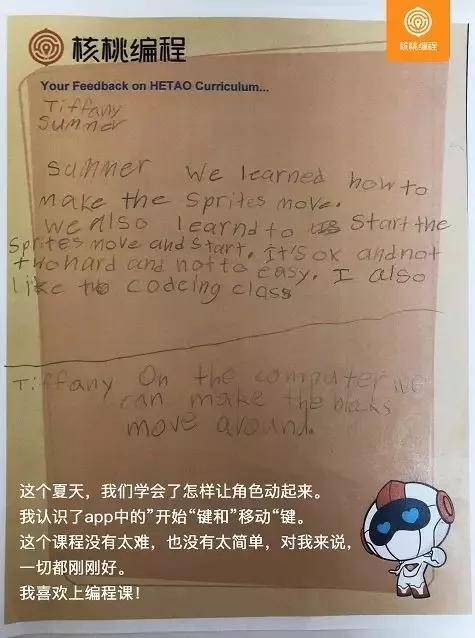 核桃编程
核桃编程
Your Feedback on HETAO Curriculum...
Tiffany
Summer
Summer We learned how to
make the Sprites move.
We Also learnd to Start the
Sprites move and Start. it's ok and not
two hard and not to easy. I also
like to codeing class
Tiffany On the computer we
can make the blocks
move around.
这个夏天，我们学会了怎样让角色动起来。
我认识了app中的”开始“键和”移动“键。
这个课程没有太难，也没有太简单，对我来说，
一切都刚刚好。
我喜欢上编程课！